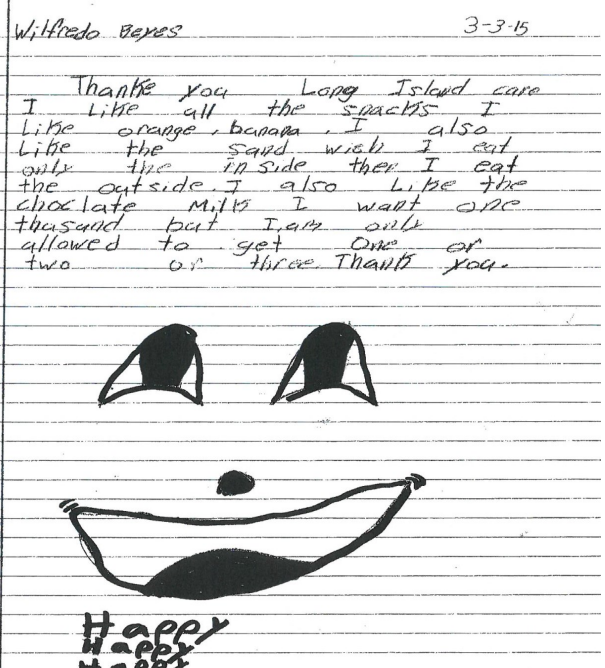 Wilfredo Beyes 3-3-15
Thanke you Long Island care
I Like all the snacks I
Like orange, banana. I also
Like the sand wich I eat
only the inside then I eat
the outside. I also Like the
choclate Milk I want one
thasand but I am only
allowed to get One or
two or three. Thank you.
Happy
Happy
Happy